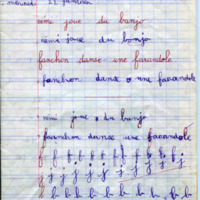 mercredi 22 janvier
rémi joue du banjo
rémi joue du banjo
fanchon danse une farandole
fanchon danse une farandole
rémi joue du banjo
fanchon danse une farandole
f f f f f f f f f
j j j j j j j
b b b b b b b b